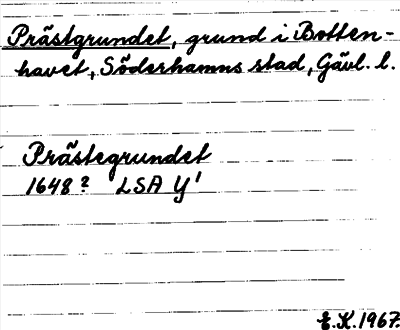 Prästgrundet, grund i Botten-
havet, Söderhamns stad, Gävl. l.
Prästegrundet
1648? LSA Y'
E.K. 1967.